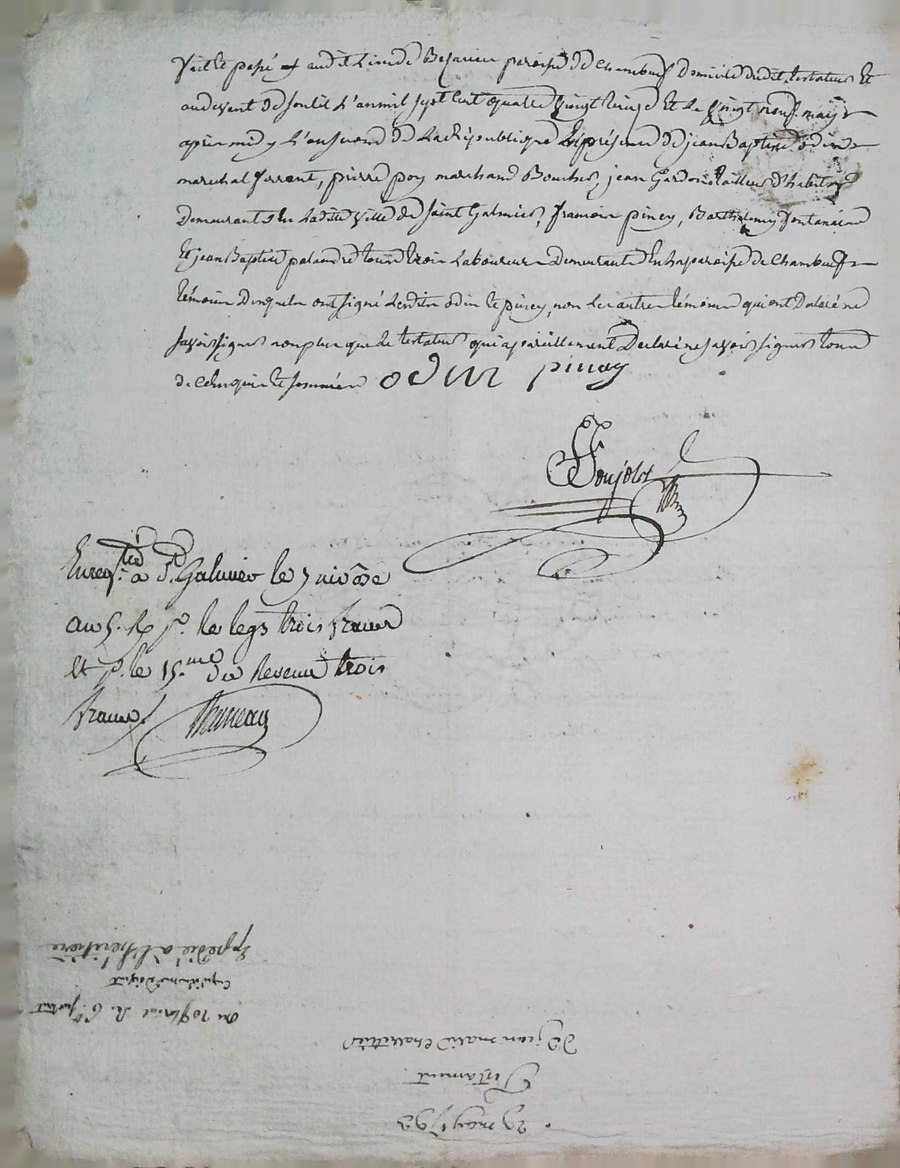 fait et passé audit lieu de paroisse de Chambeuf domicile dudit testateur Et
audevant de L'an mil sept cent quatre vingt treize Et Le vingt neuf may
apres midy L'an second de La Republique En présence de jean Baptiste odin
marechal ferrant, pierre poy marchand Boucher, jean tailleur d'habits
Demeurants En Ladite ville de Saint Galmier, françois piney, Barthelemy
Et jean Baptiste tous trois Laboureurs Demeurants En la paroisse de Chambeuf
témoins Desquels ont signé Lesdits odin et piney, non Les autres témoins qui ont Declaré ne
savoir signer non plus que Le testateur qui a pareillement Declaré ne savoir signer
de Ce Enquis et sommés odin pinay
Poujolat
Enregtré à St. Galmier le 7 nivose
au 5. R pr. le legs trois francs
et pr. le 15.me du Revenu trois
francs Bruneau
29 may 1793
Testament
De jean marie
Expedié à l'heritiere